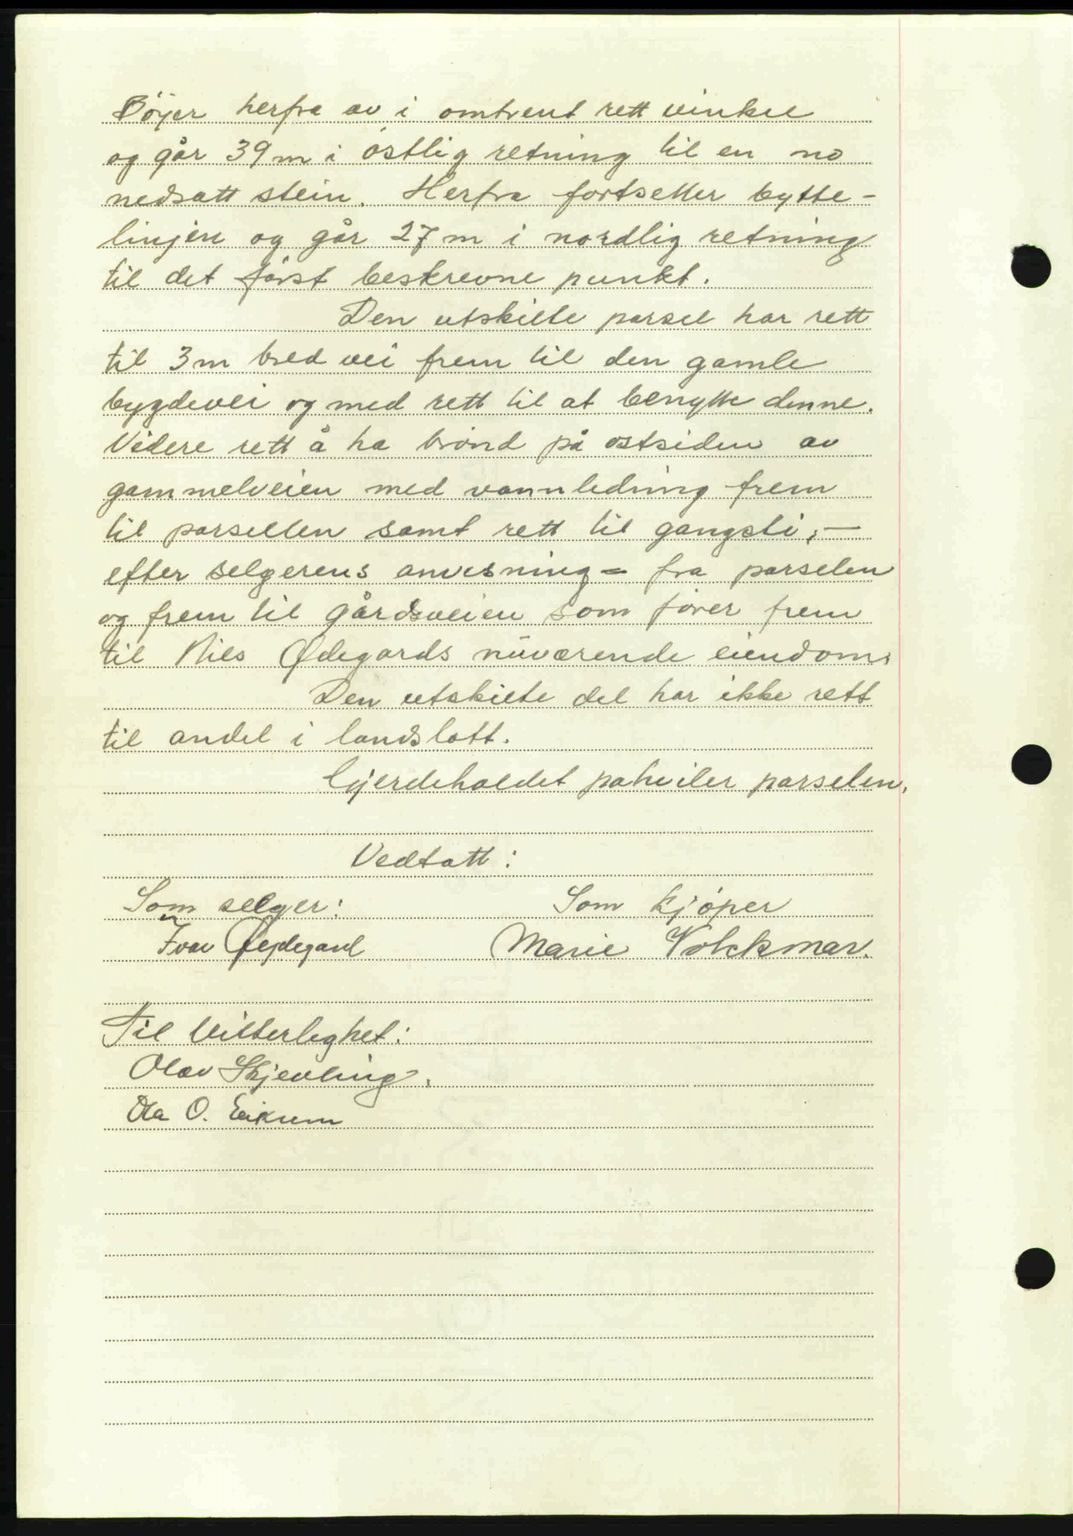 Bøjer herfra av i omtrent rett vinkel
og går 39 m i østlig retning til en no
nedsatt stein. Herfra fortsetter bytte-
linjen og går 27 m i nordlig retning
til det først beskrevne punkt.
Den utskilte parsel har rett
til 3 m bred vei frem til den gamle
bygdevei og med rett til at benytte denne.
Videre rett å ha brønd på østsiden av
gammelveien med vannledning frem
til parsellen samt rett til gangsti, -
efter selgerens anvisning - fra parselen
og frem til gårdsveien som fører frem
til Nils Ødegårds nuværende eiendom.
Den utskilte del har ikke rett
til andel i landslott.
Gjerdeholdet påhviler parselen.
Vedtatt:
Som selger: Som kjøper
Ivar Øydegard Marie Volckmar.
Til Vitterlighet:
Olav Skjevling.
Ola O. Eikum